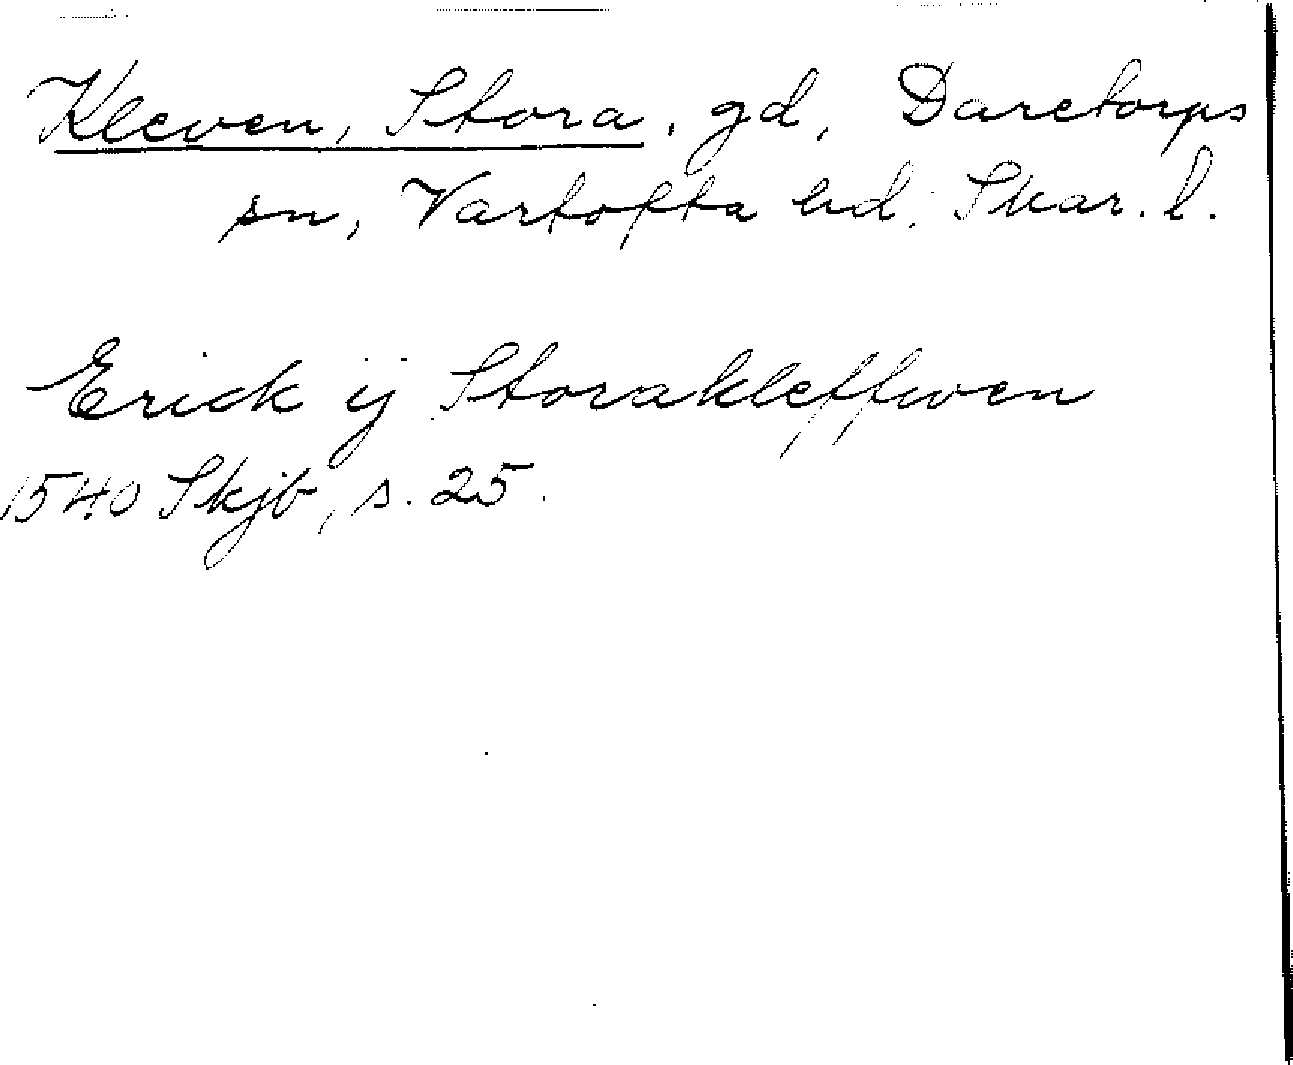 Kleven, Stora, gd, Daretorps
sn, Vartofta hd, Skar. l.
Erick ij Storakleffwen
1540 Skjb, s. 25.